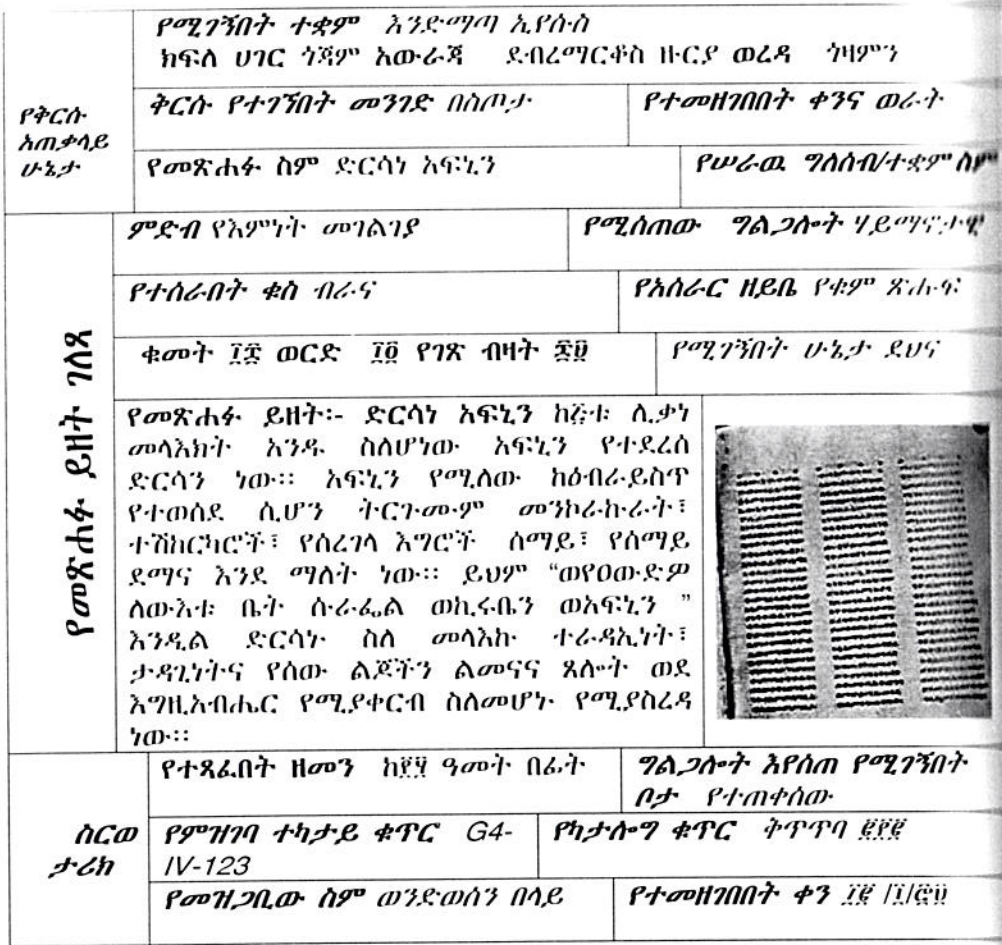 የሚገኝበት ተቋም እንድማጣ ኢየሱስ
ክፍለ ሀገር ጎጃም አውራጃ ደብረማርቆስ ዙርያ ወረዳ ጎዛምን
የቅርሱ አጠቃላይ ሁኔታ
ቅርሱ የተገኘበት መንገድ በስጦታ
የተመዘገበበት ቀንና ወራት
የመጽሐፉ ስም ድርሳነ አፍኒን
የሠራዉ ግለሰብ/ተቋም ስም
የመጽሐፉ ይዘት ገለጻ
ምድብ የእምነት መገልገያ
የሚሰጠው ግልጋሎት ሃይማኖታዊ
የተሰራበት ቁስ ብራና
የአሰራር ዘይቤ የቁም ጽሑፍ
ቁመት ወርድ የገጽ ብዛት
የሚገኝበት ሁኔታ ደህና
የመጽሐፉ ይዘት፡- ድርሳነ አፍኒን ከ፯ቱ ሊቃነ
መላእክት አንዱ ስለሆነው አፍኒን የተደረሰ
ድርሳን ነው፡፡ አፍኒን የሚለው ከዕብራይስጥ
የተወሰደ ሲሆን ትርጉሙም መንኮራኩራት፣
ተሽከርካሮች፣ የሰረገላ እግሮች ሰማይ፣ የሰማይ
ደማና እንደ ማለት ነው፡፡ ይህም “ወየዐውድዎ
ለውእቱ ቤት ሱራፌል ወኪሩቤን ወአፍኒን ”
እንዲል ድርሳኑ ስለ መላእኩ ተራዳኢነት፣
ታዳጊነትና የሰው ልጆችን ልመናና ጸሎት ወደ
እግዚአብሔር የሚያቀርብ ስለመሆኑ የሚያስረዳ
ነው፡፡
ስርወ ታሪክ
የተጻፈበት ዘመን ዓመት በፊት
ግልጋሎት እየሰጠ የሚገኝበት
ቦታ የተጠቀሰው
የምዝገባ ተካታይ ቁጥር G4-
IV-123
የካታሎግ ቁጥር ቅጥጥባ
የመዝጋቢው ስም ወንድወሰን በላይ
የተመዘገበበት ቀን